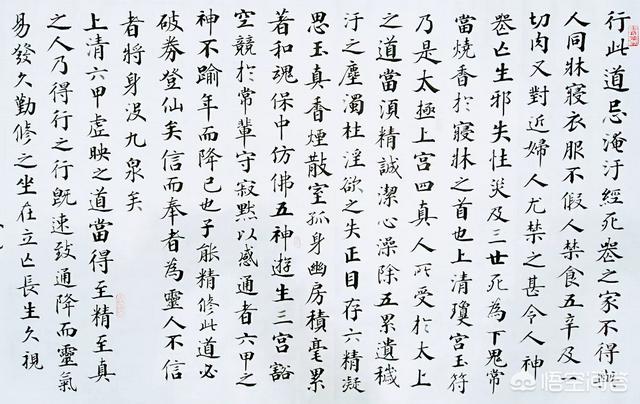 行此道忌淹汙經死喪之家不得與
人同牀寢衣服不假人禁食五辛及一
切肉又對近婦人尤禁之甚令人神
喪亡生邪失性災及三世死為下鬼常
當燒香於寢牀之首也上清瓊宮玉符
乃是太極上宮四真人所受於太上
之道當須精誠潔心澡除五累遺穢
汙之塵濁杜淫欲之失正目存六精凝
思玉真香煙散室孤身幽房積毫累
著和魂保中仿佛五神遊生三宮豁
空競於常輩守寂默以感通者六甲之
神不踰年而降已也子能精修此道必
破券登仙矣信而奉者為靈人不信
者將身沒九泉矣
上清六甲虛映之道當得至精至真
之人乃得行之行既速致通降而靈氣
易發久勤修之坐在立亡長生久視
悟空问答